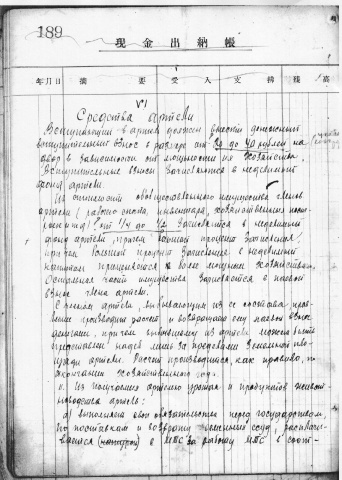 189
現金出納帳
年月日 摘要 受入 支拂 殘高
VI
Средства артели
Вступающий в артель должен внести денежный
вступительный взнос в размере от 20 до 40 рублей на
двор в зависимости от мощности их хозяйства.
Вступительные взносы зачисляются в неделимый
фонд артели.
Из стоимости обобществленного имущества членов
артели (рабочего скота, инвентаря, хозяйственных пост
роек и т.д.) от 1/4 до 1/2 зачисляется в неделимый
фонд артели, причем
причем больший процент зачисления в неделимый
капитал применяется к более мощным хозяйствам.
Остальная часть имущества зачисляется в паевой
взнос члена артели.
С членами артели, выбывающим из ее состава, прав
ление производит расчет и возвращает ему паевой взнос
деньгами, причем выбывшему из артели может быть
надел лишь за пределами земельной пло
щади артели. Расчет производится, как правило, по
окончании хозяйственного года.
Из полученного артелью урожая и продуктов живот
новодства артель:
а) выполняет свои обязательства перед государством,
по поставкам и возврату семенных ссуд, расплачи
вается с МТС за работу МТС в соот-